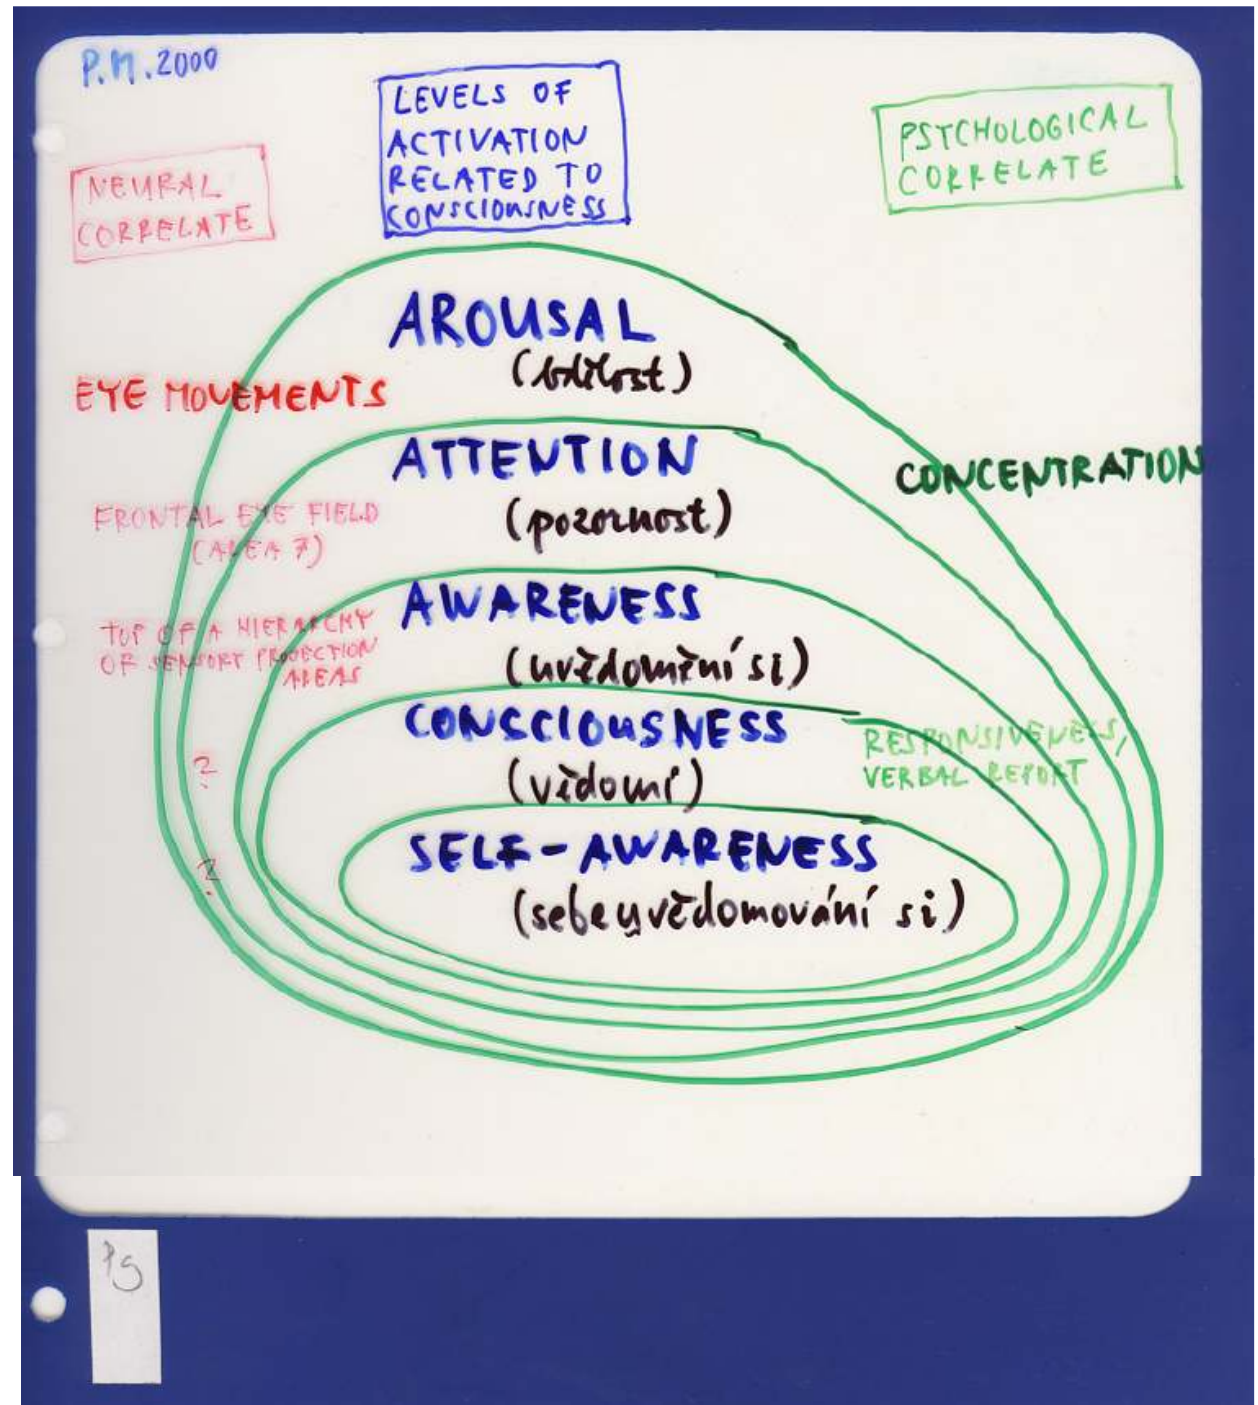 P.M.2000
LEVELS OF
ACTIVATION
RELATED TO
CONSCIOUSNESS
PSYCHOLOGICAL
CORRELATE
NEURAL
CORRELATE
AROUSAL
(bdělost)
EYE MOVEMENTS
ATTENTION
(pozornost)
CONCENTRATION
FRONTAL EYE FIELD
(AREA 7)
AWARENESS
(uvědomění si)
TOP OF A HIERARCHY
OF SENSORY PROJECTION
AREAS
CONSCIOUSNESS
(vědomí)
RESPONSIVENESS,
VERBAL REPORT
?
SELF-AWARENESS
(sebeuvědomování si)
?